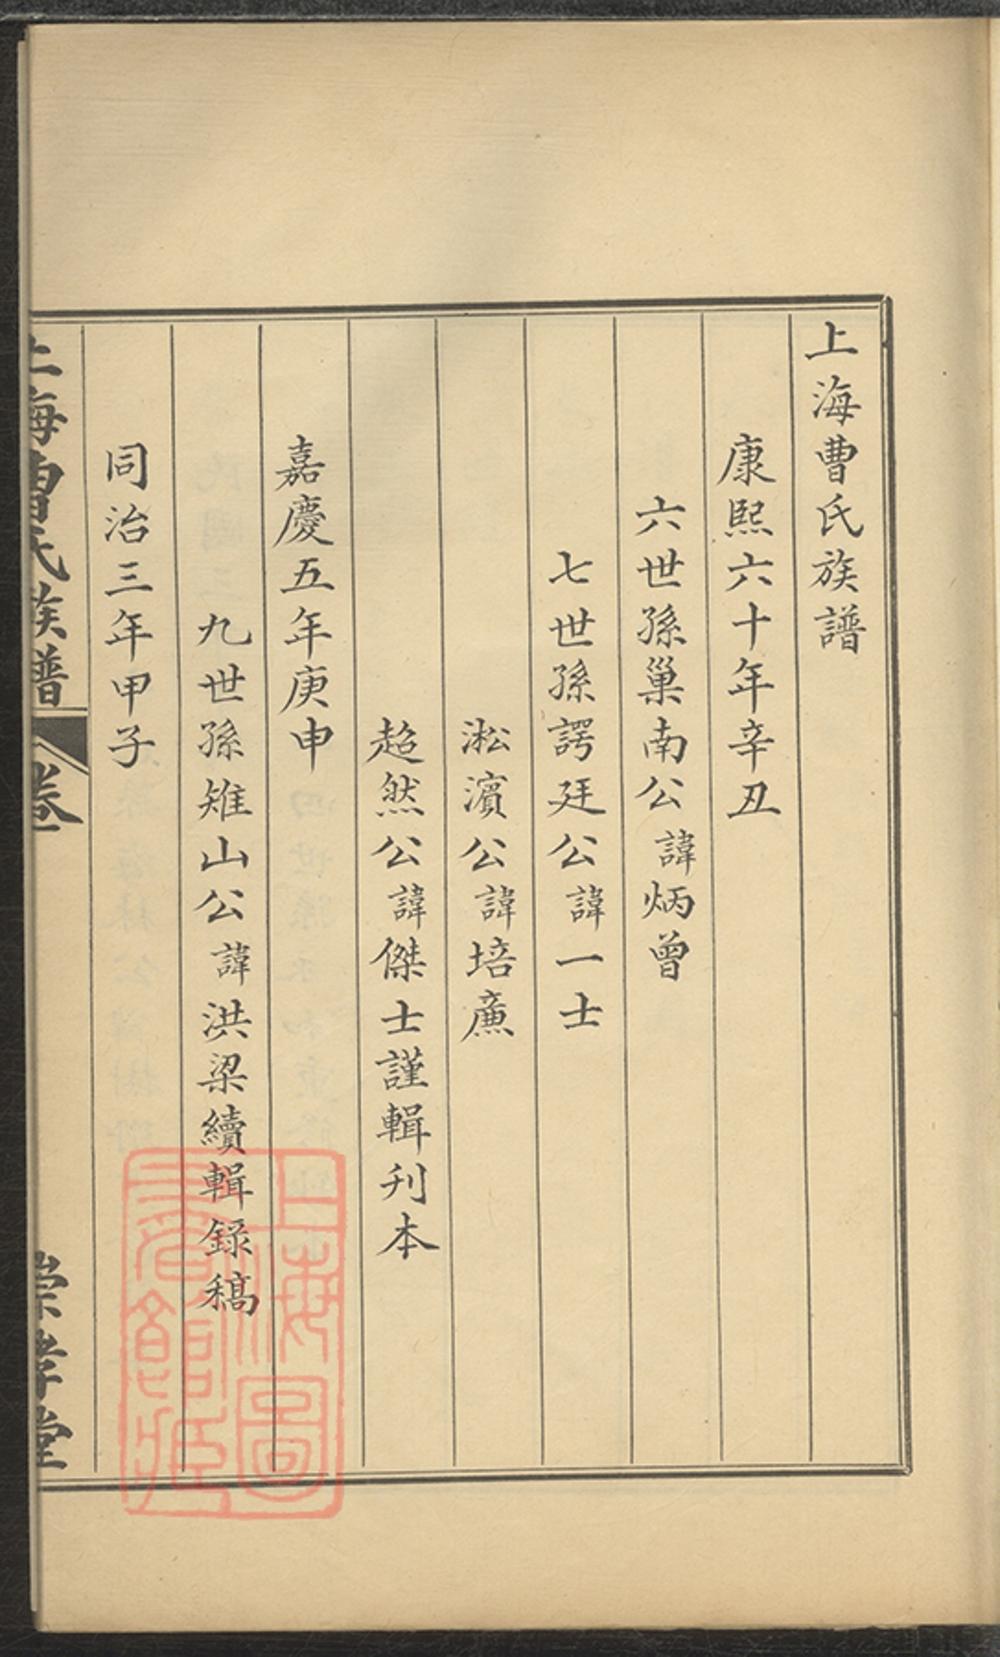 上海曹氏族譜
康熙六十年辛丑
六世孫巢南公諱炳曾
七世孫諤廷公諱一士
淞濱公諱培廉
超然公諱傑士謹輯刋本
嘉慶五年庚申
九世孫雉山公諱洪梁續輯錄稿
同治三年甲子
上海曹氏族譜 卷一 崇孝堂
上海圖書館藏